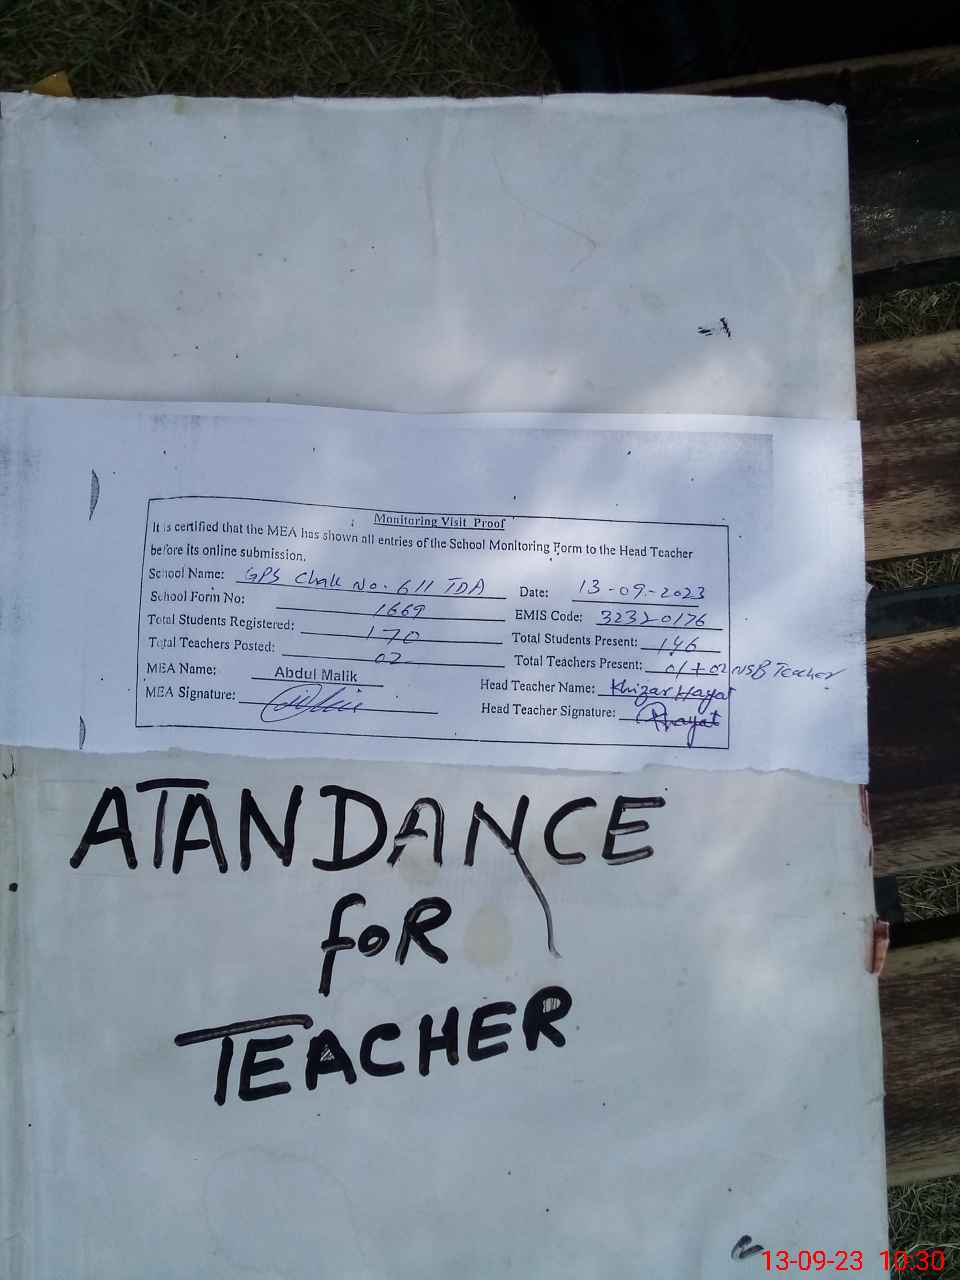 Monitoring Visit Proof
It is certified that the MEA has shown all entries of the School Monitoring Form to the Head Teacher
before its online submission.
School Name: GPS Chak No. 611 TDA Date: 13-09-2023
School Form No: 1669 EMIS Code: 32320176
Total Students Registered: 170 Total Students Present: 146
Total Teachers Posted: 02 Total Teachers Present: 01+02 NSB Teacher
MEA Name: Abdul Malik Head Teacher Name: Khizar Hayat
MEA Signature: Head Teacher Signature: Khayat
ATANDANCE
foR
TEACHER
13-09-23 10:30